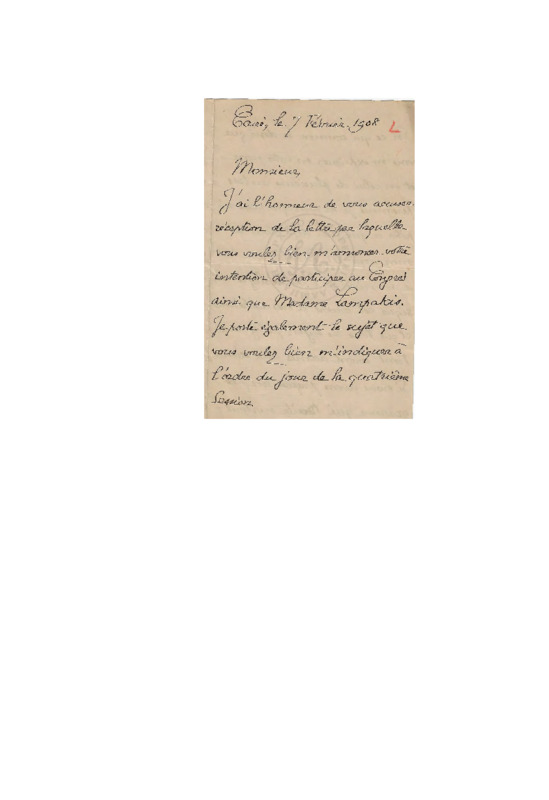 Caire, le 7 Février 1908
Monsieur,
J'ai l'honneur de vous accuser
réception de la lettre par laquelle
vous voulez bien m'annoncer votre
intention de participer au Congrès
ainsi que Madame Lampakis.
Je porte également le sujet que
vous voulez bien m'indiquer à
l'ordre du jour de la quatrième
Session